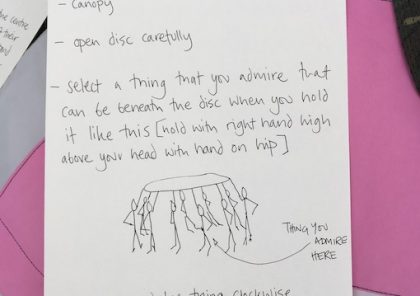 - canopy
- open disc carefully
- select a thing that you admire that
can be beneath the disc when you hold
it like this [hold with right hand high
above your head with hand on hip]
THING YOU
ADMIRE
HERE
thing clockwise
the centre
their